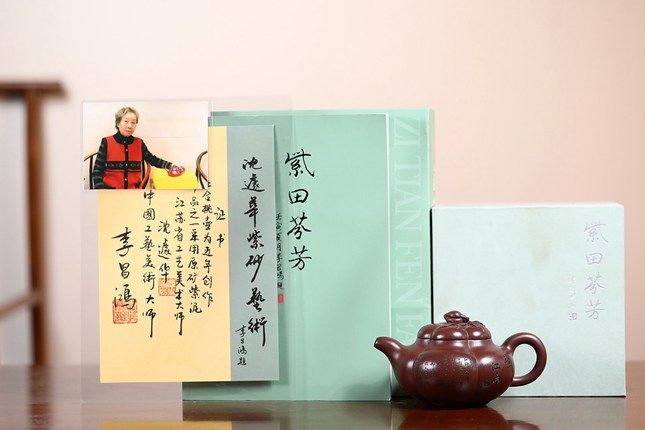 证书
合桃壶为五年创作
品之一采用原矿紫泥
江苏省工艺美术大师
沈遽华
中國工艺美術大师
李昌鸿
沈遽華紫砂藝術
李昌鴻題
紫田芬芳
ZI TIAN FEN FA
紫田芬芳